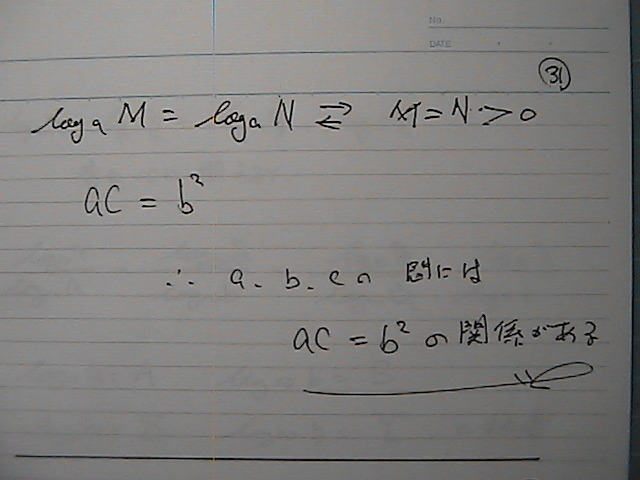 No.
DATE
㉛
log a M = log a N ⇄ M = N > 0
ac = b²
∴ a. b. c の 間には
ac = b² の関係がある